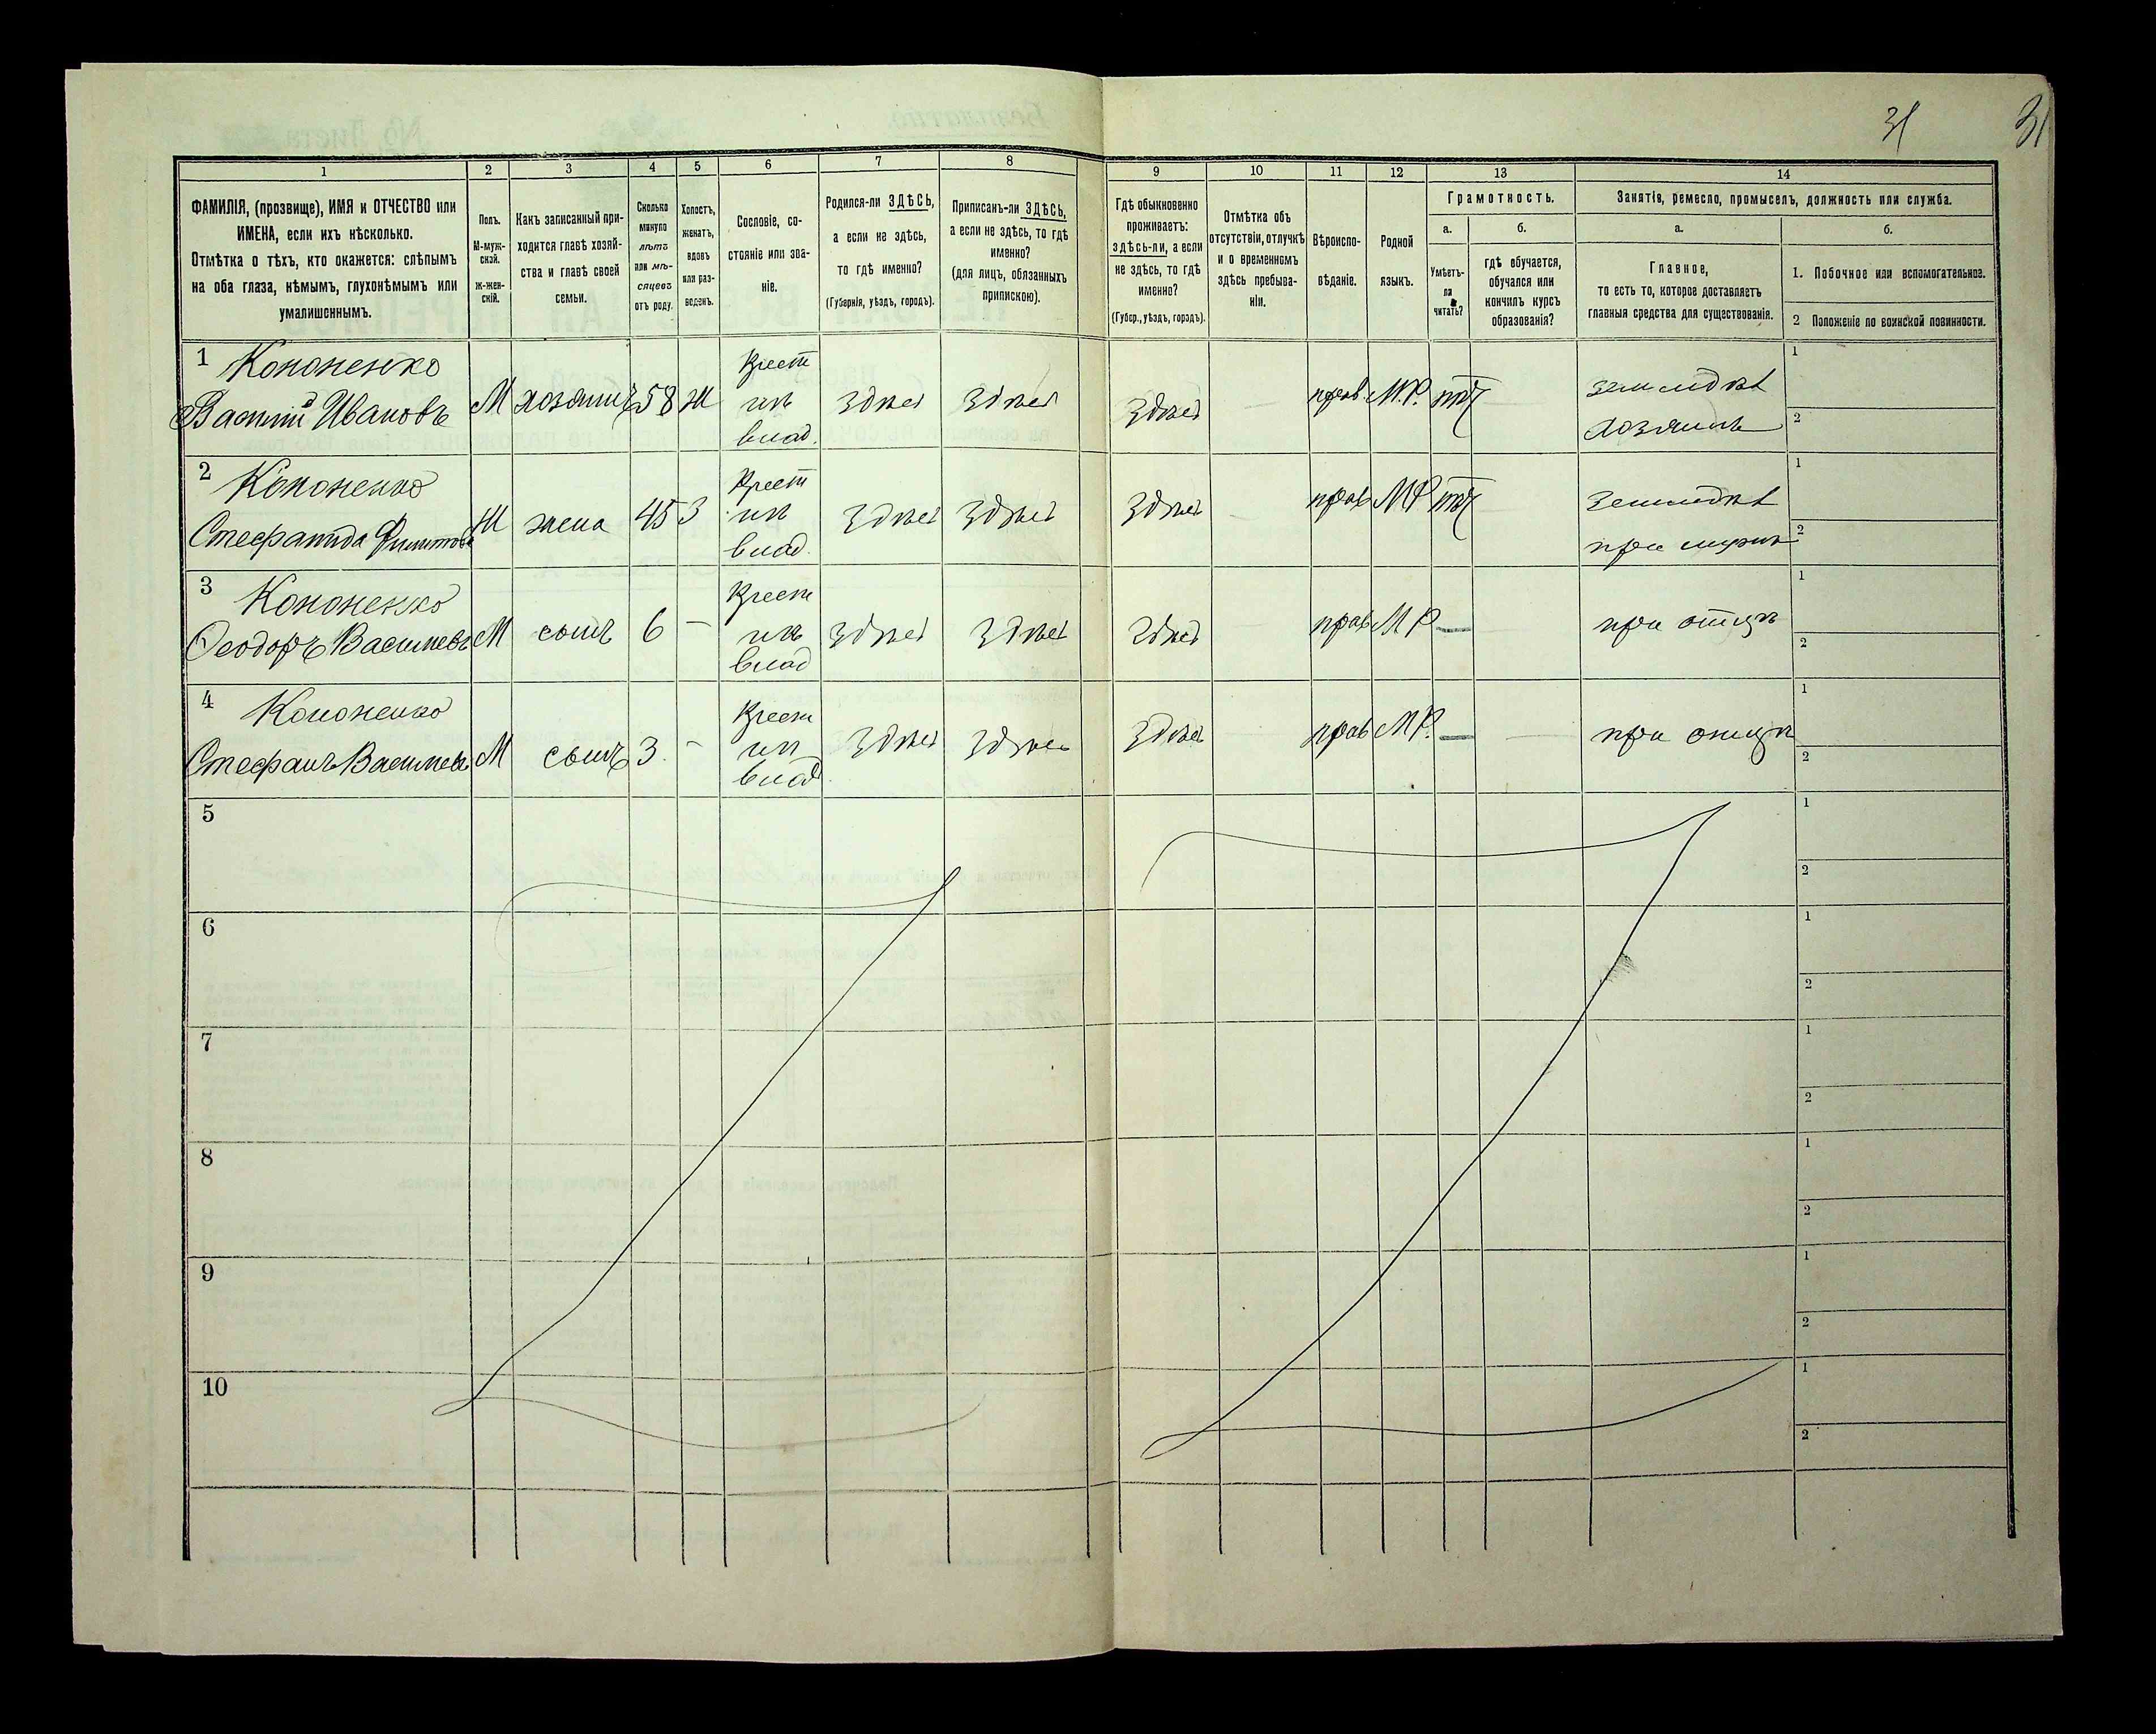 31
31
1
2
3
4
5
6
7
8
9
10
11
12
13
14
ФАМИЛІЯ, (прозвище), ИМЯ и ОТЧЕСТВО или
ИМЕНА, если ихъ нѣсколько.
Отмѣтка о тѣхъ, кто окажется: слѣпымъ
на оба глаза, нѣмымъ, глухонѣмымъ или
умалишеннымъ.
Полъ.
М-муж-
ской.
ж-жен-
скій.
Какъ записанный при-
ходится главѣ хозяй-
ства и главѣ своей
семьи.
Сколько
минуло
лѣтъ
или мѣ-
сяцевъ
отъ роду.
Холостъ,
женатъ,
вдовъ
или раз-
веденъ.
Сословіе, со-
стояніе или зва-
ніе.
Родился-ли ЗДѢСЬ,
а если не здѣсь,
то гдѣ именно?
(Губернія, уѣздъ, городъ).
Приписанъ-ли ЗДѢСЬ,
а если не здѣсь, то гдѣ
именно?
(для лицъ, обязанныхъ
припискою).
Гдѣ обыкновенно
проживаетъ:
здѣсь-ли, а если
не здѣсь, то гдѣ
именно?
(Губер., уѣздъ, городъ).
Отмѣтка объ
отсутствіи, отлучкѣ
и о временномъ
здѣсь пребыва-
ніи.
Вѣроиспо-
вѣданіе.
Родной
языкъ.
Грамотность.
а.
Умѣетъ-
ли
читать?
б.
гдѣ обучается,
обучался или
кончилъ курсъ
образованія?
Занятія, ремесло, промыселъ, должность или служба.
а.
Главное,
то есть то, которое доставляетъ
главныя средства для существованія.
б.
1. Побочное или вспомогательное.
2 Положеніе по воинской повинности.
1 Кононенко
Василій Ивановъ
М
хозяинъ
58
Ж
Крест
изъ
влад.
здѣсь
здѣсь
здѣсь
прав
М.Р.
нѣтъ
земледѣл
хозяинъ
1
2
2 Кононенко
Стефанида Филиппова
Ж
жена
45
З
Крест
изъ
влад.
здѣсь
здѣсь
здѣсь
прав
МР
нѣтъ
земледѣл
при мужѣ
1
2
3 Кононенко
Ѳеодоръ Васильевъ
М
сынъ
6
—
Крест
изъ
влад
здѣсь
здѣсь
здѣсь
прав
М Р
—
при отцѣ
1
2
4 Кононенко
Стефанъ Васильевъ
М
сынъ
3.
-
Крест
изъ
влад.
здѣсь
здѣсь
здѣсь
прав
МР.
—
при отцѣ
1
2
5
1
2
6
1
2
7
1
2
8
1
2
9
1
2
10
1
2